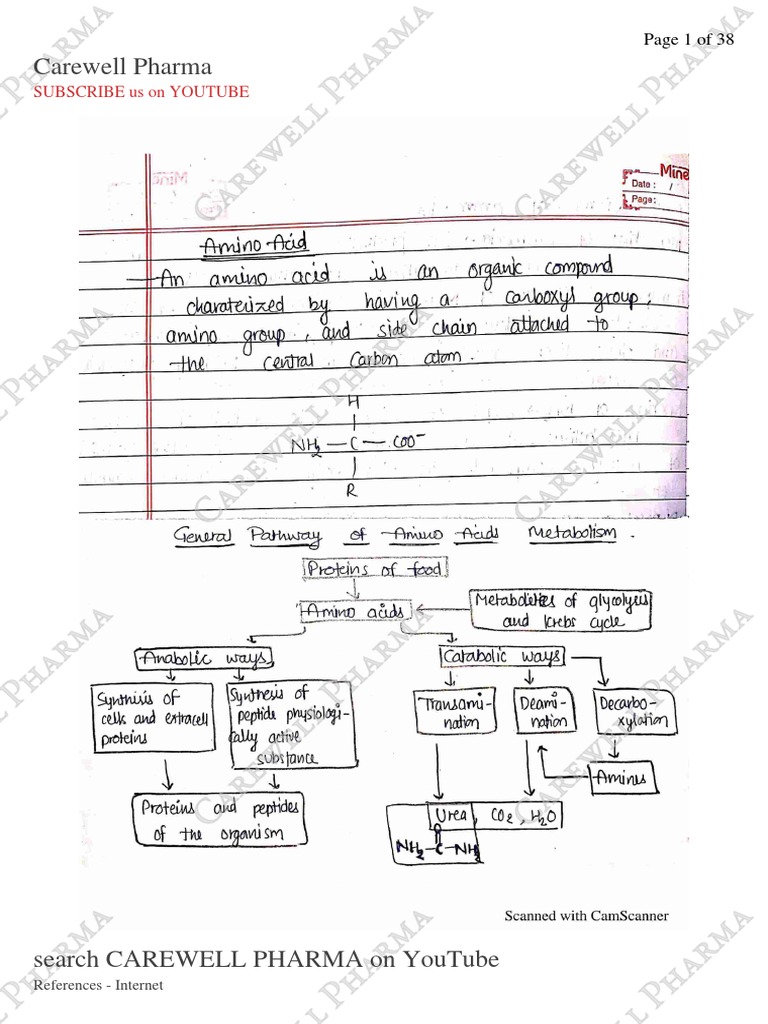 Page 1 of 38
Carewell Pharma
SUBSCRIBE us on YOUTUBE
Mine
Date : /
Page:
Amino Acid
— An amino acid is an organic compound
charaterized by having a carboxyl group,
amino group, and side chain attached to
the central carbon atom.
H
NH2 — C — COO-
R
General Pathway of Amino Acids Metabolism.
Proteins of food
Amino acids
Metabolites of glycolysis
and krebs cycle
Anabolic ways
Catabolic ways
Synthisis of
cells and extracell
proteins
Synthesis of
peptide physiologi-
cally active
substance
Transami-
nation
Deami-
nation
Decarbo-
xylation
Amines
Proteins and peptides
of the organism
Urea, CO2, H2O
O
NH2-C-NH2
Scanned with CamScanner
search CAREWELL PHARMA on YouTube
References - Internet
CAREWELL PHARMA